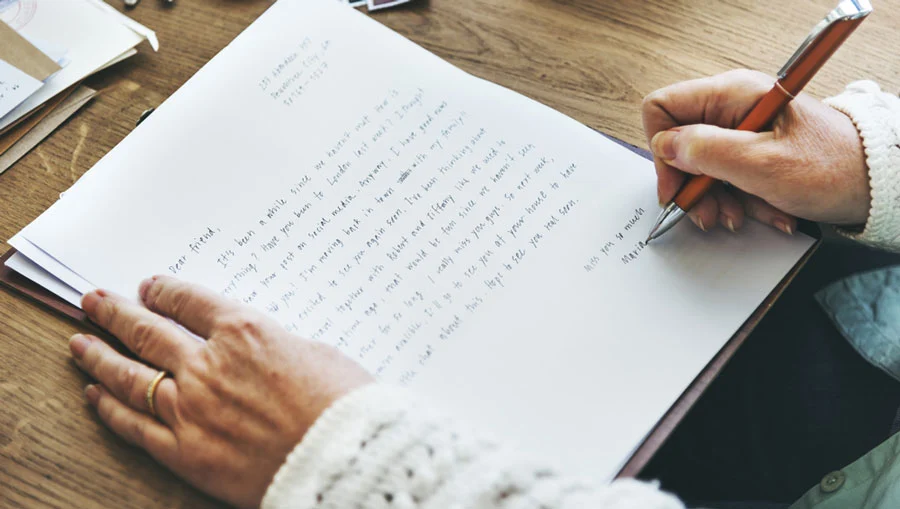 Dear friend,
It's been a while since we haven't met. How is
everything? Have you been to London last month? I thought
saw your post on social media. Anyway, I have good news
you! I'm moving back in town with my family.
excited to see you again soon. I've been thinking about
travel together with Robert and Tiffany like we used to
longtime ago. That would be fun since we haven't seen
other for so long. I really miss you guys. So next week,
I'll go to see you at your house to have
chat about this. Hope to see you real soon.
Miss you so much
Maria